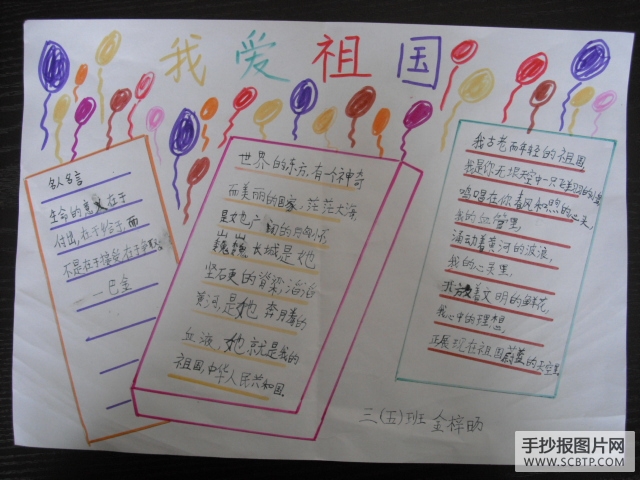 我爱祖国
名人名言
生命的意义在于
付出,在于给予,而
不是在于接受,在于争取。
——巴金
世界的东方,有一个神奇
而美丽的国家,茫茫大海
是她广阔的胸怀,
巍巍长城是她
坚石更的脊梁,滔滔
黄河,是她奔月着的
血液,她就是我的
祖国,中华人民共和国.
我古老而年轻的祖国
我是你无垠天空中一只
鸣唱在你春风和煦的心灵,
我的血管里,
涌动着黄河的波浪,
我的心灵里,
着文明的鲜花,
我心中的理想,
正展现在祖国蔚蓝的天空里
三(五)班 金梓旸
手抄报图片网
WWW.SCBTP.COM